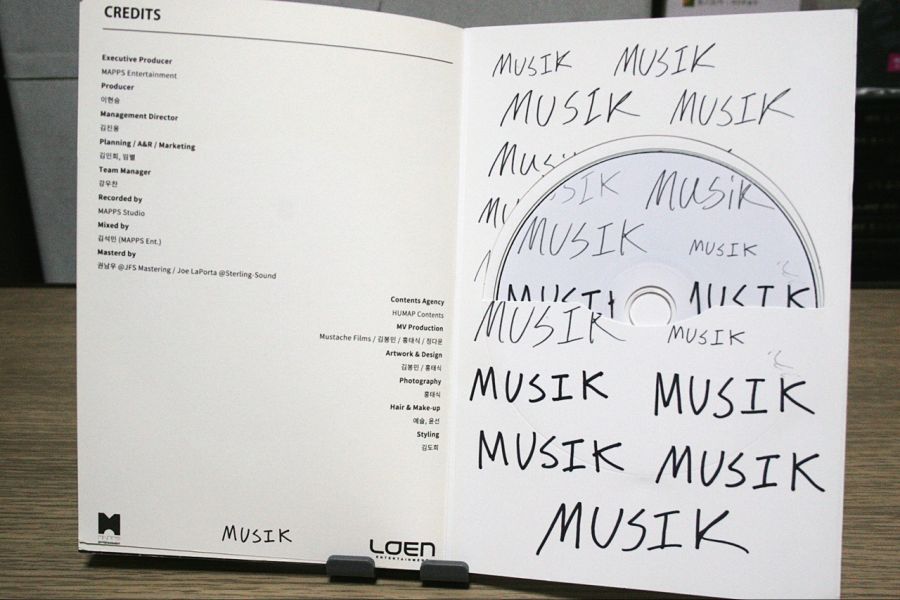 CREDITS
Executive Producer
MAPPS Entertainment
Producer
이현승
Management Director
김진용
Planning / A&R / Marketing
김민희, 임별
Team Manager
강우찬
Recorded by
MAPPS Studio
Mixed by
김석민 (MAPPS Ent.)
Masterd by
권남우 @JFS Mastering / Joe LaPorta @Sterling-Sound
Contents Agency
HUMAP Contents
MV Production
Mustache Films / 김봉민 / 홍태식 / 정다운
Artwork & Design
김봉민 / 홍태식
Photography
홍태식
Hair & Make-up
예슬, 윤선
Styling
김도희
MUSIK
LOEN
ENTERTAINMENT
MUSIK MUSIK
MUSIK MUSIK
MUSIK
MUSIK MUSIK
MUSIK MUSIK
MUSIK MUSIK
MUSIK MUSIK
MUSIK MUSIK
MUSIK